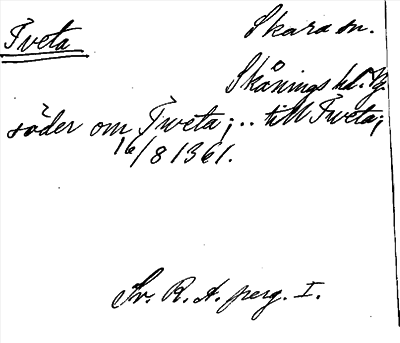 Tveta
Skara sn.
Skånings hd. Vg.
söder om Tweta; .. till Tweta;
16/8 1361.
Sv. R. A. perg. I.